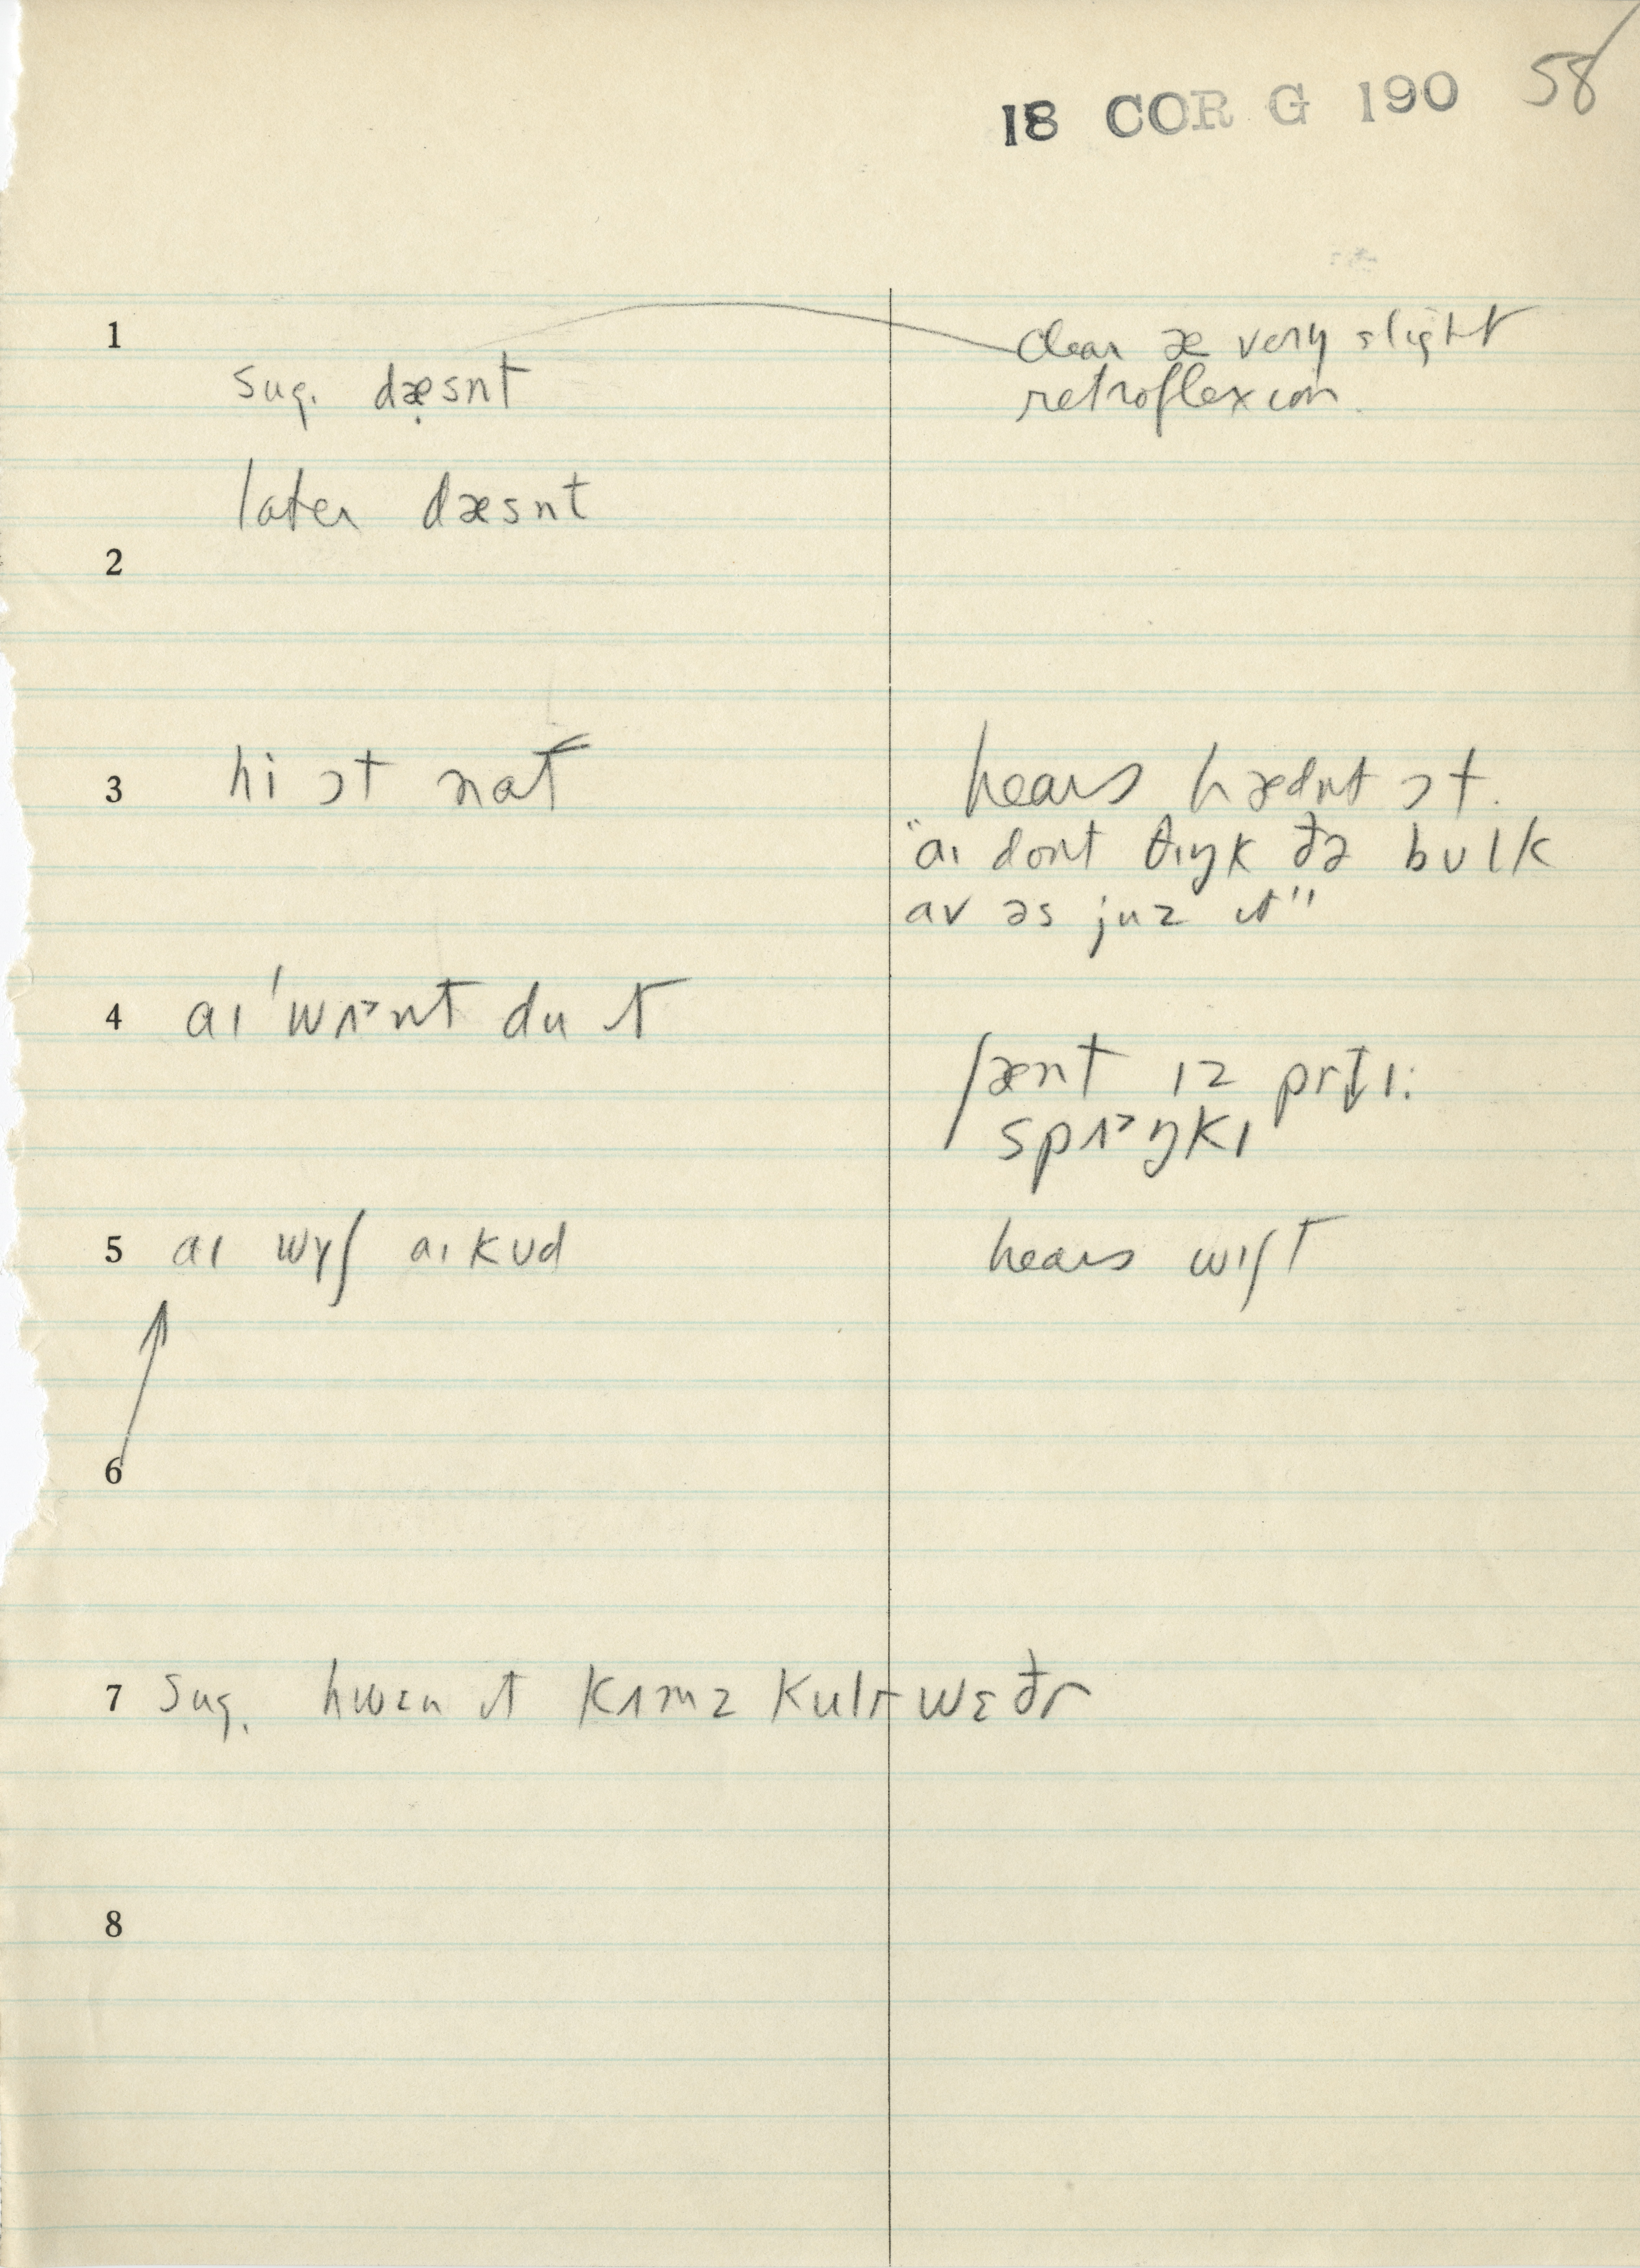 18 COR G 190 58
clear æ very slight
1
retroflexion.
sug. dæ̣snt
later dæsnt
2
3 hi ɔt nat
hears hædnt ɔt.
"aɪ dont θɪŋk ðə bʊlk
av əs juz ɪt"
4 aɪ 'wʌᵊnt du ɪt
ʃænt ɪz
spʌᵊŋkɪ
5 aɪ wʏʃ aɪ kʊd
hears wɪʃt
6
7 sug. hwɛn ɪt kʌmz wɛðr
8